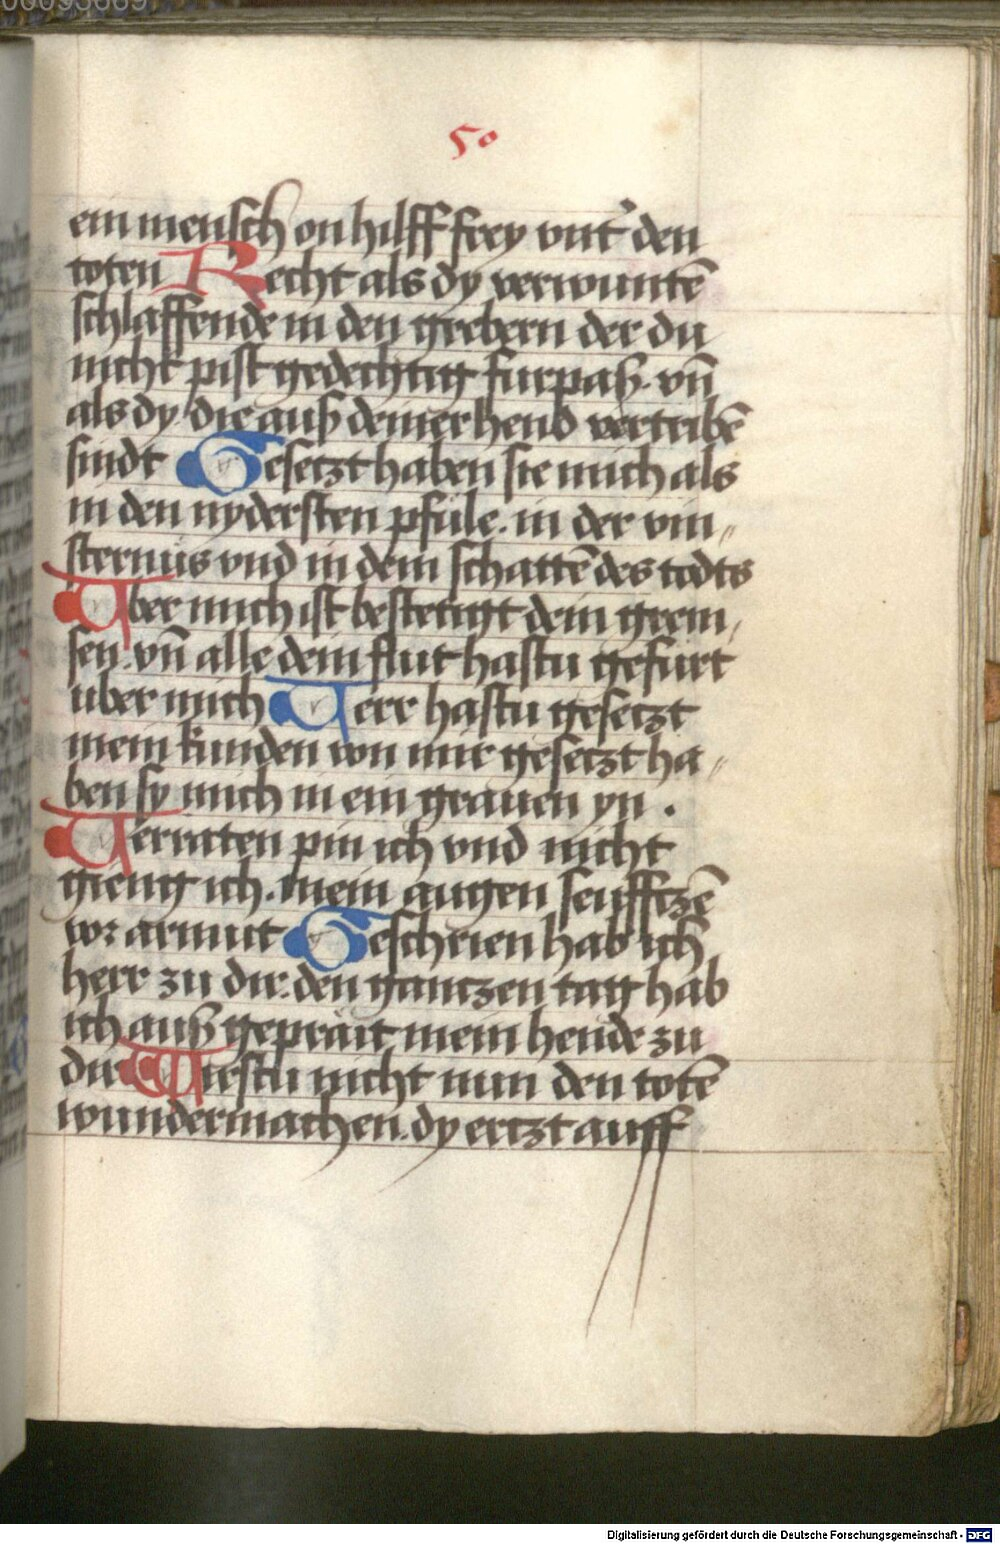 50
ein mensch on hilff frey vnt̉ den
toten Recht als dy verwuntē
schlaffende in den grebern der du
nicht pist gedechtig furpaß. vn̄
als dy die auß deiner hend vertribē
sindt Gesetzt haben sie mich als
in den nydersten pfule. in der vin〃
sternüs vnd in dem schattē des todts
Vber mich ist bestetigt dein grem〃
sen. vn̄ alle dein flut hastu gefurt
uber mich Verr hastu gesetzt
mein kunden von mir gesetzt ha〃
ben sy mich in ein grauen yn .
Verraten pin ich vnd nicht
gieng ich. mein augen seufftzē
vor armut Geschrien hab ich
herr zu dir. den gantzen tag hab
ich auß geprait mein hende zu
dir Wiestu nicht nun den totē
wundermachen. dy ertzt auff
Digitalisierung gefördert durch die Deutsche Forschungsgemeinschaft - DFG